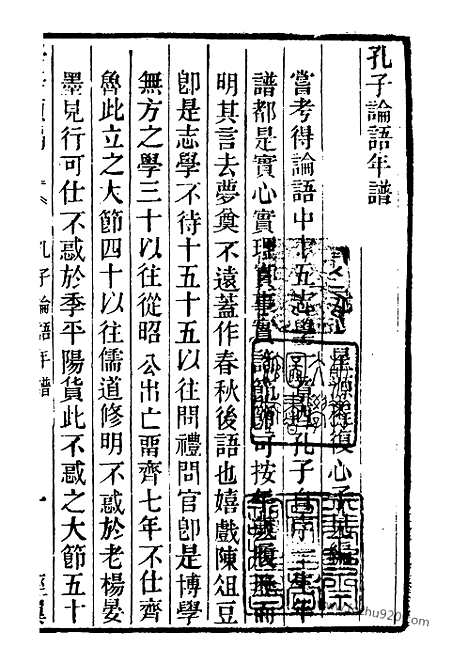 孔子論語年譜
復心子
嘗考得論語中十五志學一章四孔子自序一生年
譜都是實心實理實事實詣節節可按年譜履歷而
明其言去夢奠不遠蓋作春秋後語也嬉戲陳俎豆
卽是志學不待十五十五以往問禮問官卽是博學
無方之學三十以往從昭公出亡畱齊七年不仕齊
魯此立之大節四十以往儒道修明不惑於老楊晏
墨見行可仕不惑於季平陽貨此不惑之大節五十
孔子論語年譜
一
zhu920.com